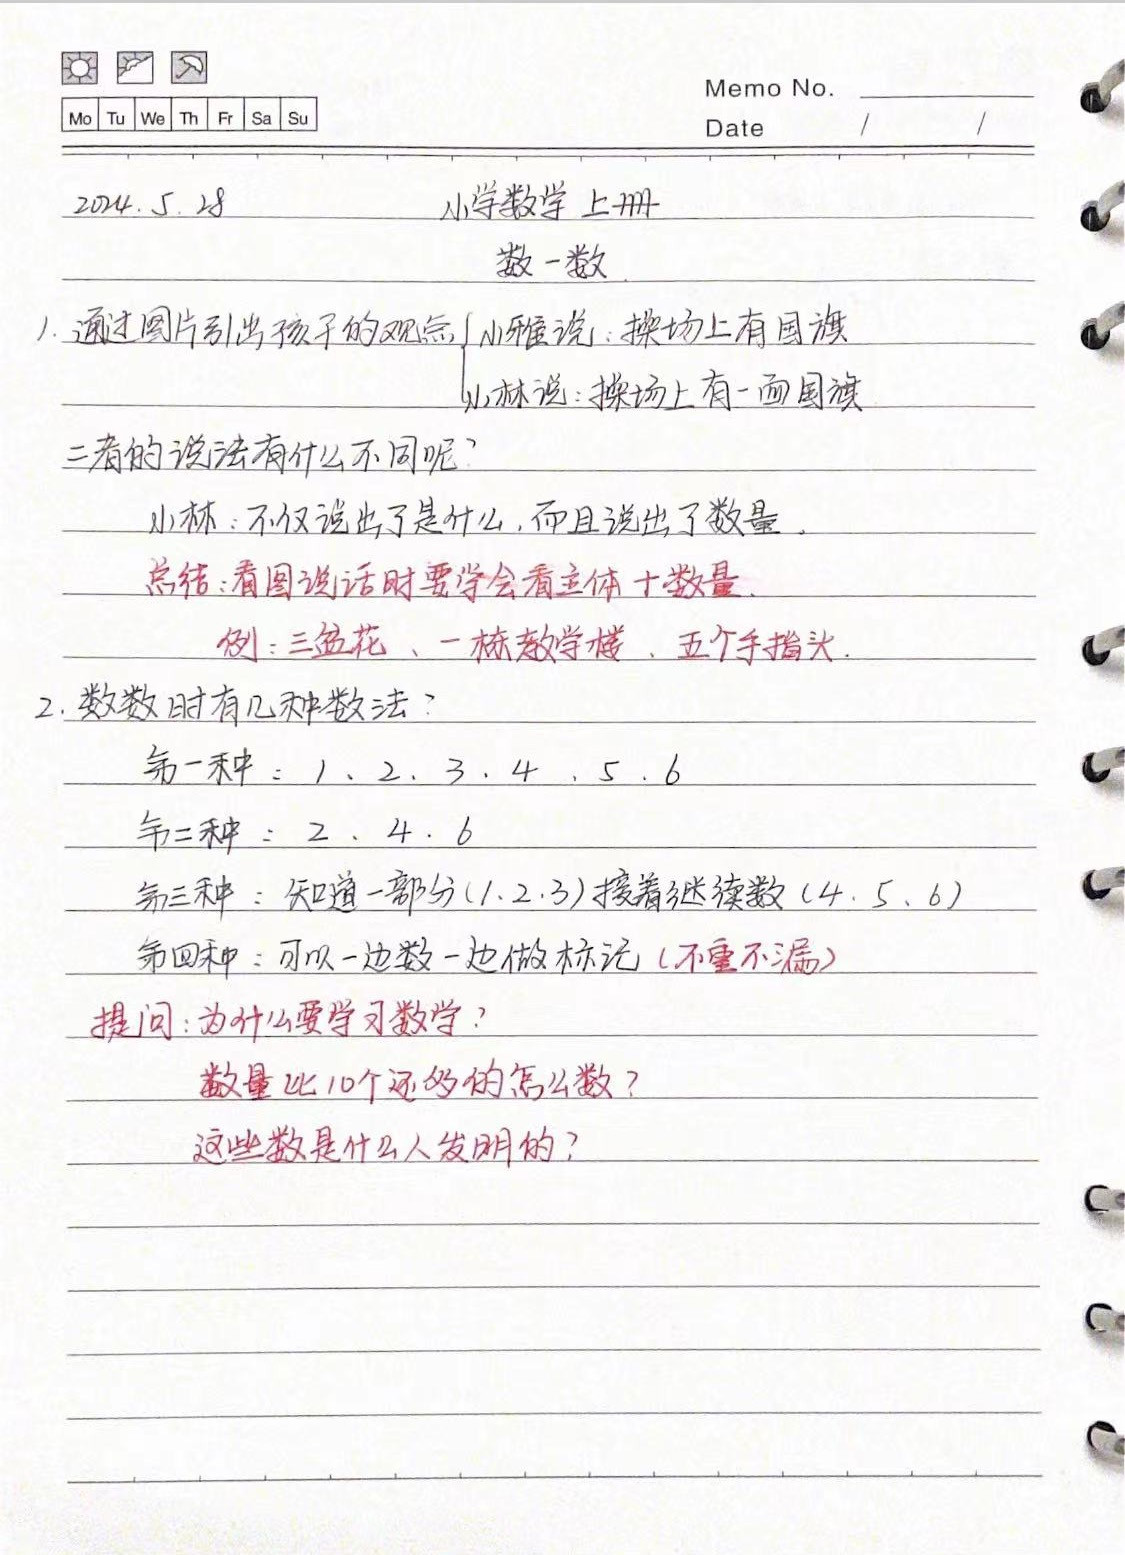 Mo Tu We Th Fr Sa Su
Memo No.
Date / /
2024.5.28 小学数学 上册
数一数
1. 通过图片引出孩子的观点 小雅说:操场上有国旗
小林说:操场上有一面国旗
二者的说法有什么不同呢?
小林:不仅说出了是什么,而且说出了数量.
总结:看图说话时要学会看主体+数量.
例:三盆花、一栋教学楼、五个手指头.
2. 数数时有几种数法?
第一种:1、2、3、4、5、6
第二种:2、4、6
第三种:知道一部分(1.2.3)接着继续数(4.5、6)
第四种:可以一边数一边做标记(不重不漏)
提问:为什么要学习数学?
数量比10个还多的怎么数?
这些数是什么人发明的?